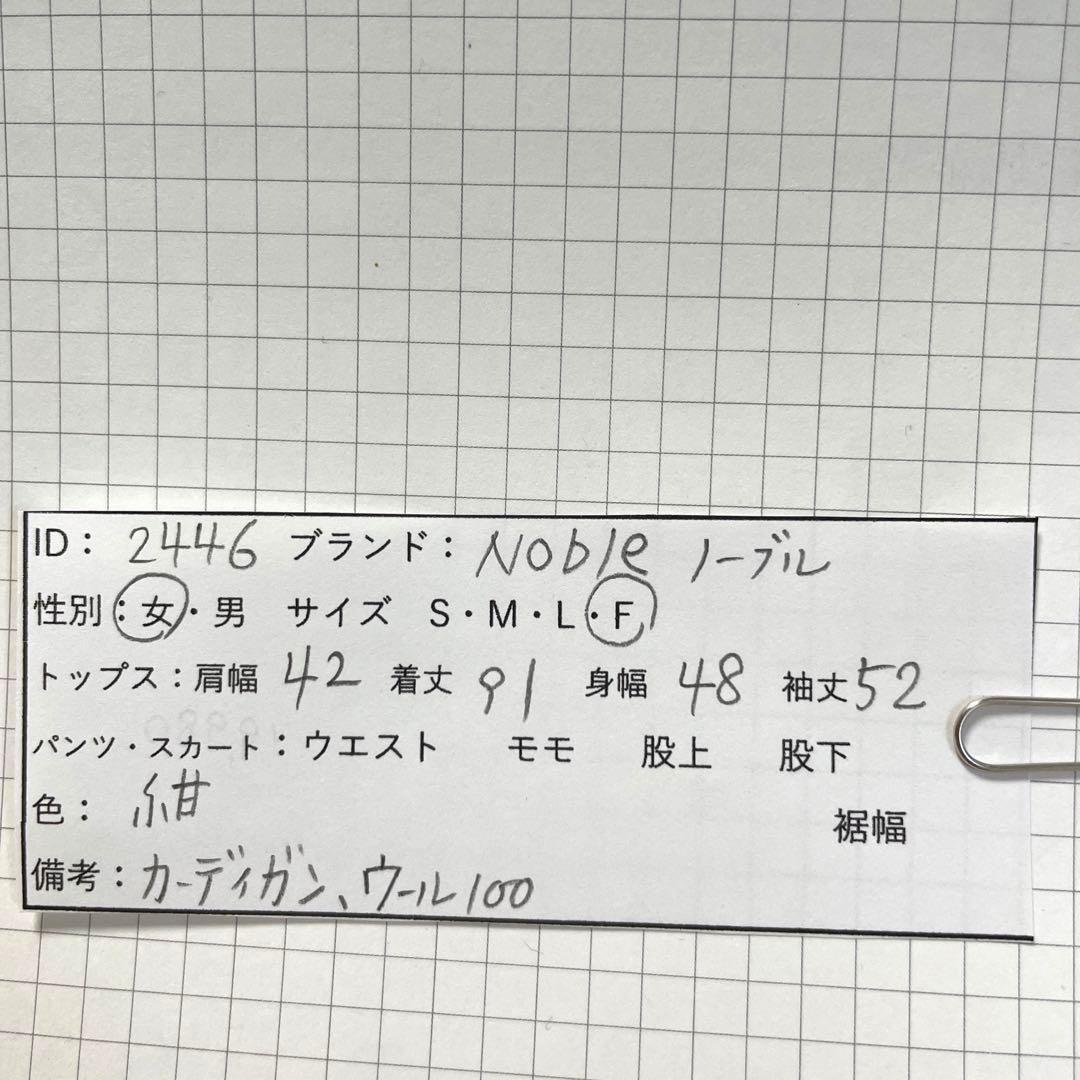 ID： 2446 ブランド： Noble ノーブル
性別：女・男 サイズ S・M・L・F
トップス：肩幅 42 着丈 91 身幅 48 袖丈 52
パンツ・スカート：ウエスト モモ 股上 股下
色： 紺 裾幅
備考：カーディガン、ウール100